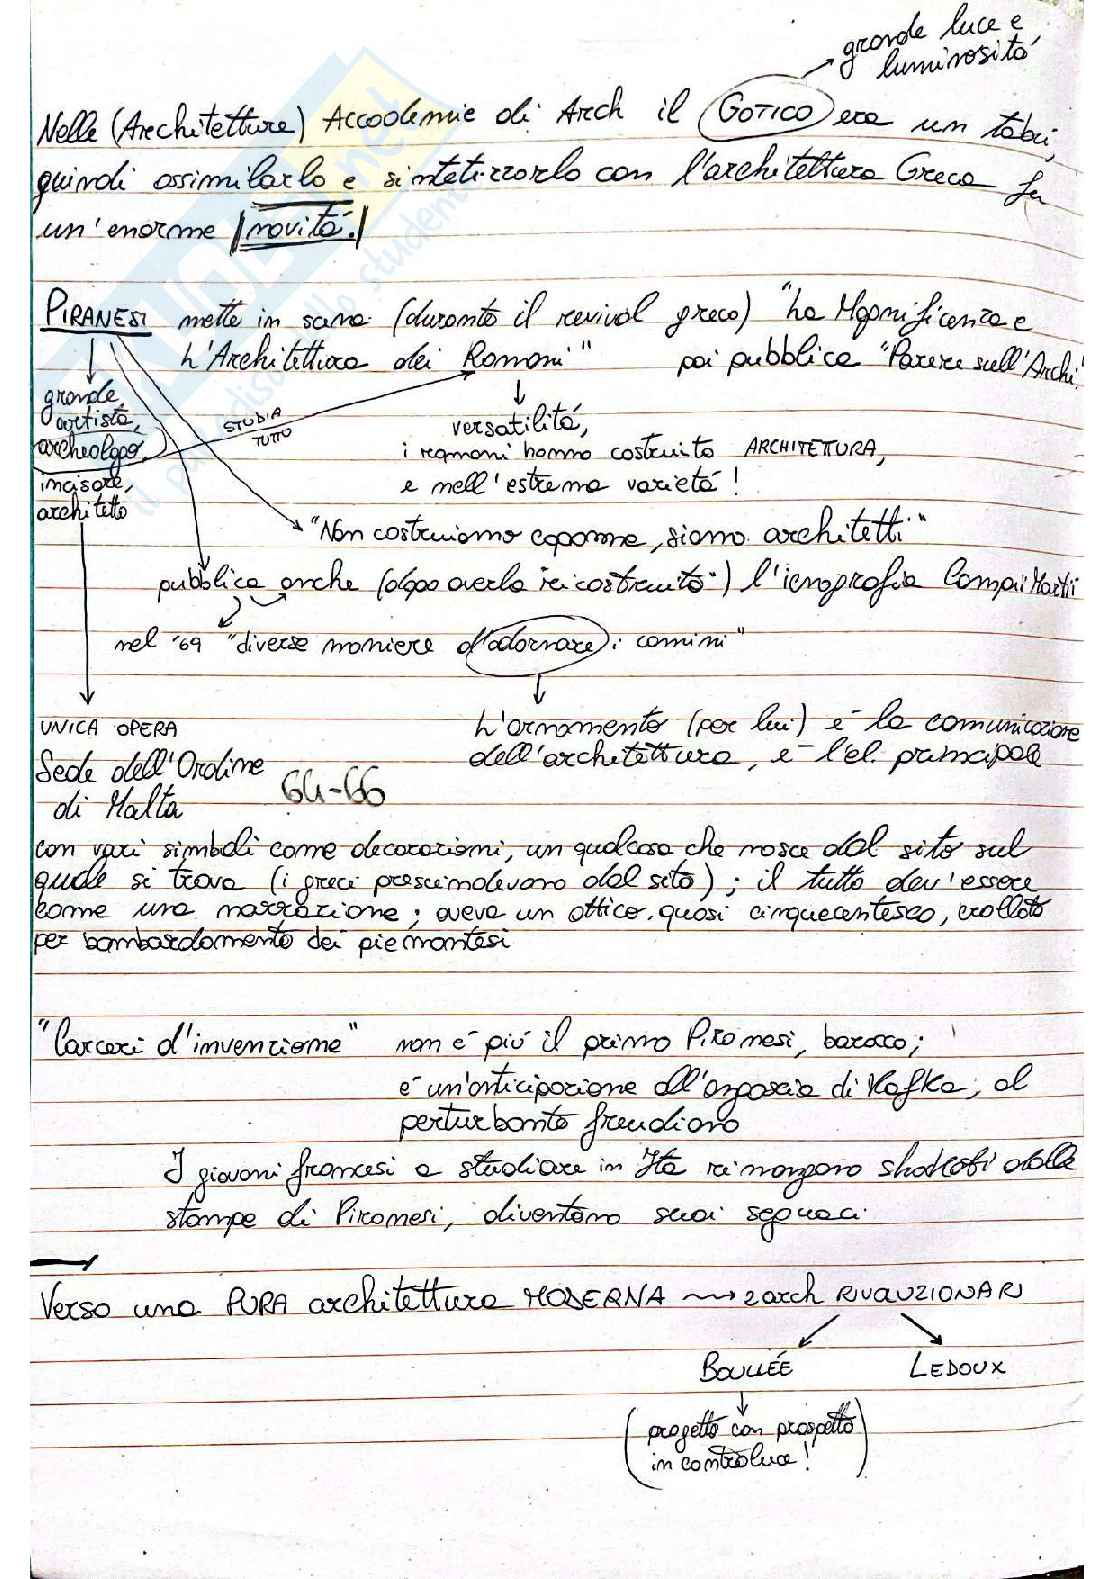 grande luce e
luminosità
Nelle (Architetture) Accademie di Arch il GOTICO era un tabù,
quindi assimilarlo e sintetizzarlo con l'architettura Greca fu
un'enorme novità!
PIRANESI mette in scena (durante il revival greco) "La Magnificenza e
L'Architettura dei Romani" poi pubblica "Parere sull'Archi"
grande
artista,
archeologo,
incisore,
architetto
STUDIA
TUTTO
versatilità,
i romani hanno costruito ARCHITETTURA,
e nell'estrema varietà!
"Non costruiamo capanne, siamo architetti"
pubblica anche (dopo averla ricostruita) l'icnografia Campi Martii
nel '69 "diverse maniere d'adornare i camini"
UNICA OPERA
Sede dell'Ordine
di Malta
64-66
L'ornamento (per lui) è la comunicazione
dell'architettura, è l'el. principale
con vari simboli come decorazioni, un qualcosa che nasce dal sito sul
quale si trova (i greci prescindevano dal sito); il tutto dev'essere
come una narrazione; aveva un attico quasi cinquecentesco, crollato
per bombardamento dei piemontesi
"Carceri d'invenzione" non è più il primo Piranesi, barocco;
è un'anticipazione all'angoscia di Kafka, al
perturbante freudiano
I giovani francesi a studiare in Ita rimangono shockati dalle
stampe di Piranesi, diventano suoi seguaci
Verso una PURA architettura MODERNA 2 arch RIVOLUZIONARI
BOULLÉE LEDOUX
(progetto con prospetto
in controluce!)